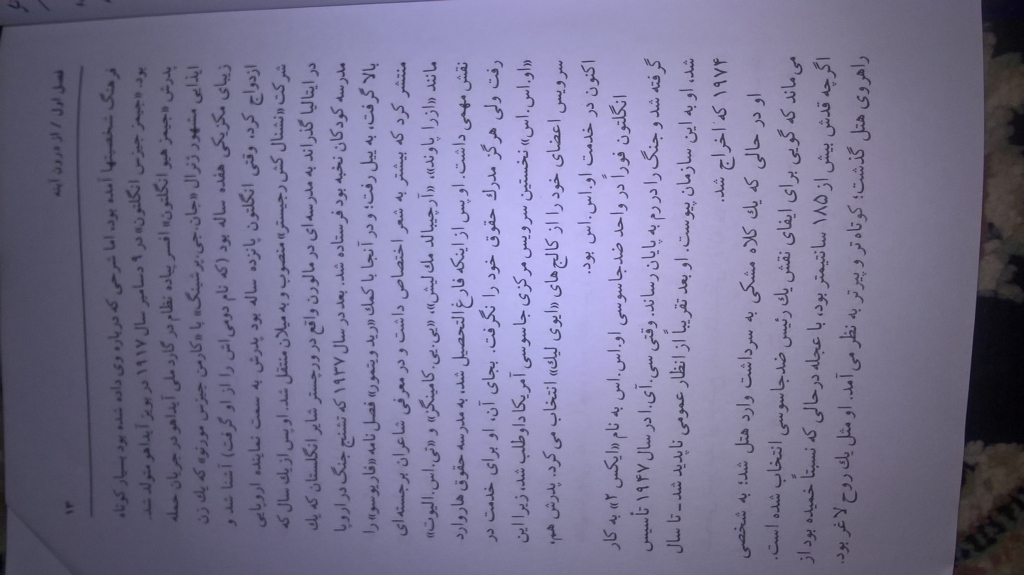 ۱۳ فصل اول / از درون آینه
فرهنگ شخصیتها آمده بود، اما شرحی که درباره وی داده شده بود بسیار کوتاه
بود. «جیمز جیزس انگلتون» در ۹ دسامبر سال ۱۹۱۷ در بویز آیداهو متولد شد.
پدرش «جیمز هیو انگلتون» افسر پیاده نظام در گارد ملی آیداهو در جریان حمله
ایذایی مشهور ژنرال «جان.جی.پرشینگ» با «کارمن جیزس مورنو» که یك زن
زیبای مکزیکی هفده ساله بود (که نام دومی اش را از او گرفت) آشنا شد و
ازدواج کرد. وقتی انگلتون پانزده ساله بود پدرش به سمت نماینده اروپایی
شرکت «نشنال کش رجیستر» منصوب و به میلان منتقل شد. او پس از یك سال که
در ایتالیا گذراند به مدرسه‌ای در مالورن واقع در ورچستر شایر انگلستان که یك
مدرسه کودکان نخبه بود فرستاده شد. بعد در سال ۱۹۳۷ که تشنج جنگ در اروپا
بالا گرفت، به ییل رفت، و در آنجا با کمك «رید ویتمور» فصل نامه «فاریوسو» را
منتشر کرد که بیشتر به شعر اختصاص داشت و در معرفی شاعران برجسته‌ای
مانند «ازرا پاوند»، «آرچیبالد مك لیش»، «یی.یی.کامینگز» و «تی.اس.الیوت»
نقش مهمی داشت. او پس از اینکه فارغ التحصیل شد، به مدرسه حقوق هاروارد
رفت ولی هرگز مدرك حقوق خود را نگرفت. بجای آن، او برای خدمت در
«او.اس.اس» نخستین سرویس مرکزی جاسوسی آمریکا داوطلب شد، زیرا این
سرویس اعضای خود را از کالج های «ایوی لیگ» انتخاب می کرد. پدرش هم،
اکنون در خدمت او.اس.اس بود.
انگلتون فوراً در واحد ضدجاسوسی او.اس.اس به نام «ایکس ۲» به کار
گرفته شد و جنگ را در رم به پایان رساند. وقتی سی.آی.ا در سال ۱۹۴۷ تأسیس
شد، او به این سازمان پیوست. او بعد تقریباً از انظار عمومی ناپدید شد ـ تا سال
۱۹۷۴ که اخراج شد.
او در حالی که یك کلاه مشکی به سرداشت وارد هتل شد؛ به شخصی
می ماند که گویی برای ایفای نقش یك رئیس ضدجاسوسی انتخاب شده است.
اگرچه قدش بیش از ۱۸۵ سانتیمتر بود، با عجله درحالی که نسبتاً خمیده بود از
راهروی هتل گذشت؛ کوتاه تر و پیرتر به نظر می آمد. او مثل یك روح لاغر بود.